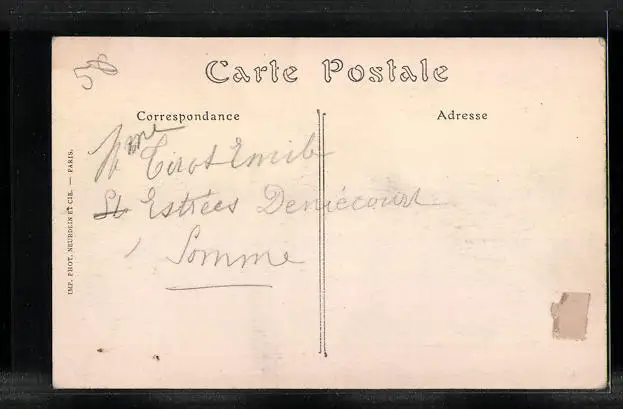 58
Carte Postale
Correspondance
Adresse
Mme Tirot Emile
St Estrées Deniécourt
Somme
IMP. PHOT. NEURDEIN ET CIE. — PARIS.